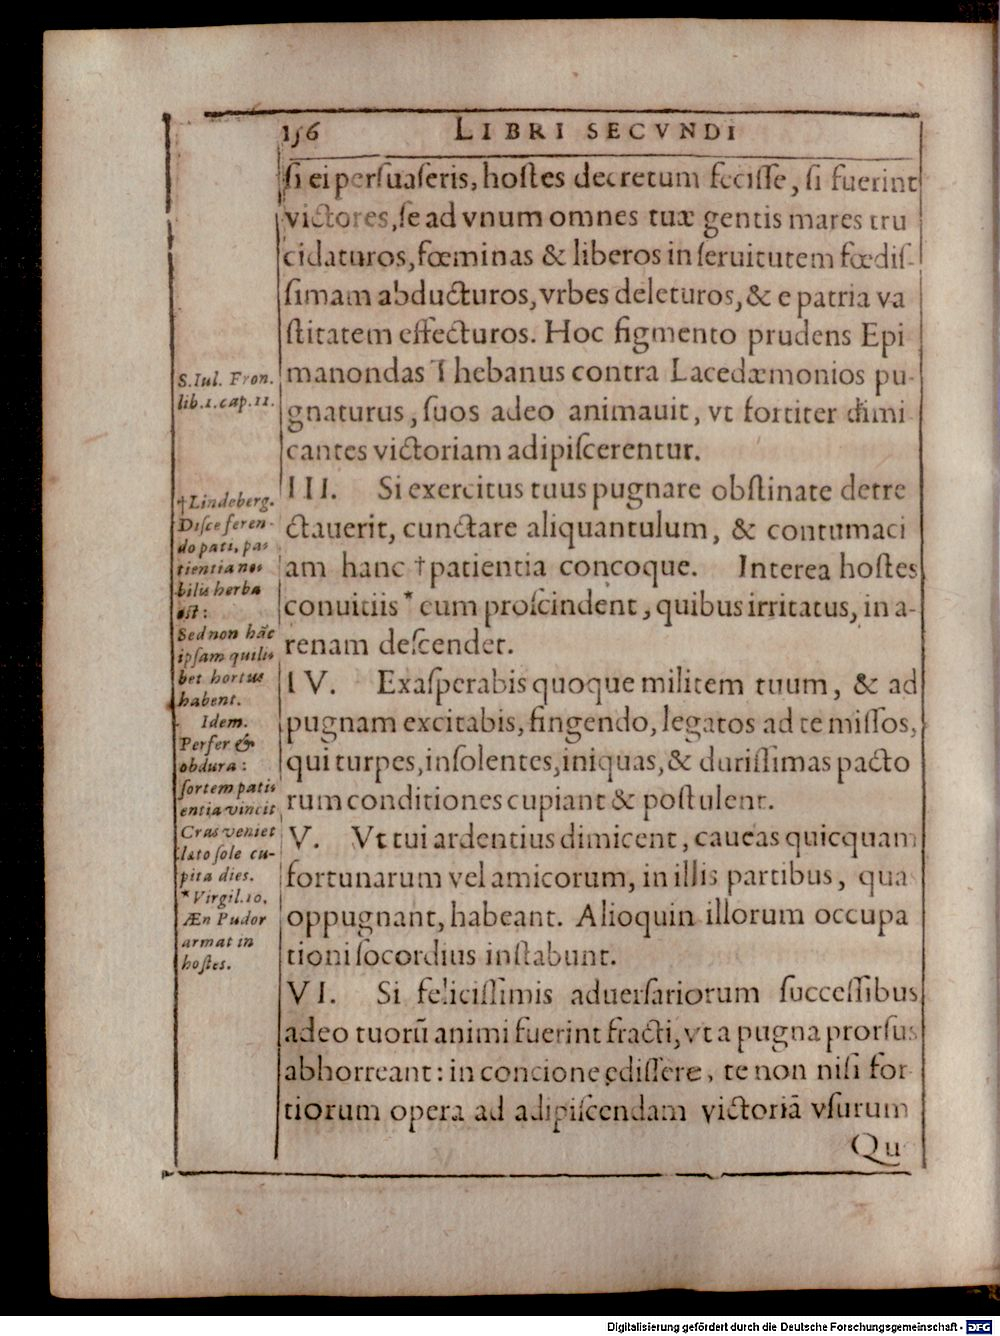 156 LIBRI SECVNDI
ſi ei perſuaſeris, hoſtes decretum feciſſe, ſi fuerint
victores, ſe ad vnum omnes tuæ gentis mares tru
cidaturos, fœminas & liberos in ſeruitutem fœdiſ-
ſimam abducturos, vrbes deleturos, & e patria va
ſtitatem effecturos. Hoc figmento prudens Epi
manondas Thebanus contra Lacedæmonios pu-
gnaturus, ſuos adeo animauit, vt fortiter dimi
cantes victoriam adipiſcerentur.
III. Si exercitus tuus pugnare obſtinate detre
ctauerit, cunctare aliquantulum, & contumaci
am hanc †patientia concoque. Interea hoſtes
conuitiis * eum proſcindent, quibus irritatus, in a-
renam deſcendet.
IV. Exaſperabis quoque militem tuum, & ad
pugnam excitabis, fingendo, legatos ad te miſſos,
qui turpes, inſolentes, iniquas, & duriſſimas pacto
rum conditiones cupiant & poſtulent.
V. Vt tui ardentius dimicent, caueas quicquam
fortunarum vel amicorum, in illis partibus, qua
oppugnant, habeant. Alioquin illorum occupa
tioni ſocordius inſtabunt.
VI. Si feliciſſimis aduerſariorum ſucceſſibus
adeo tuorũ animi fuerint fracti, vt a pugna prorſus
abhorreant: in concione ediſſere, te non niſi for
tiorum opera ad adipiſcendam victoriã vſurum
Qu
S. Iul. Fron.
lib. 1. cap. 11.
†Lindeberg.
Diſce feren-
do pati, pa-
tientia no-
bilis herba
eſt:
Sed non hãc
ipſam quili-
bet hortus
habent.
Idem.
Perfer &
obdura:
fortem pati
entia vincit
Cras veniet
lato ſole cu-
pita dies.
* Virgil. 10.
Æn Pudor
armat in
hoſtes.
Digitalisierung gefördert durch die Deutsche Forschungsgemeinschaft - DFG